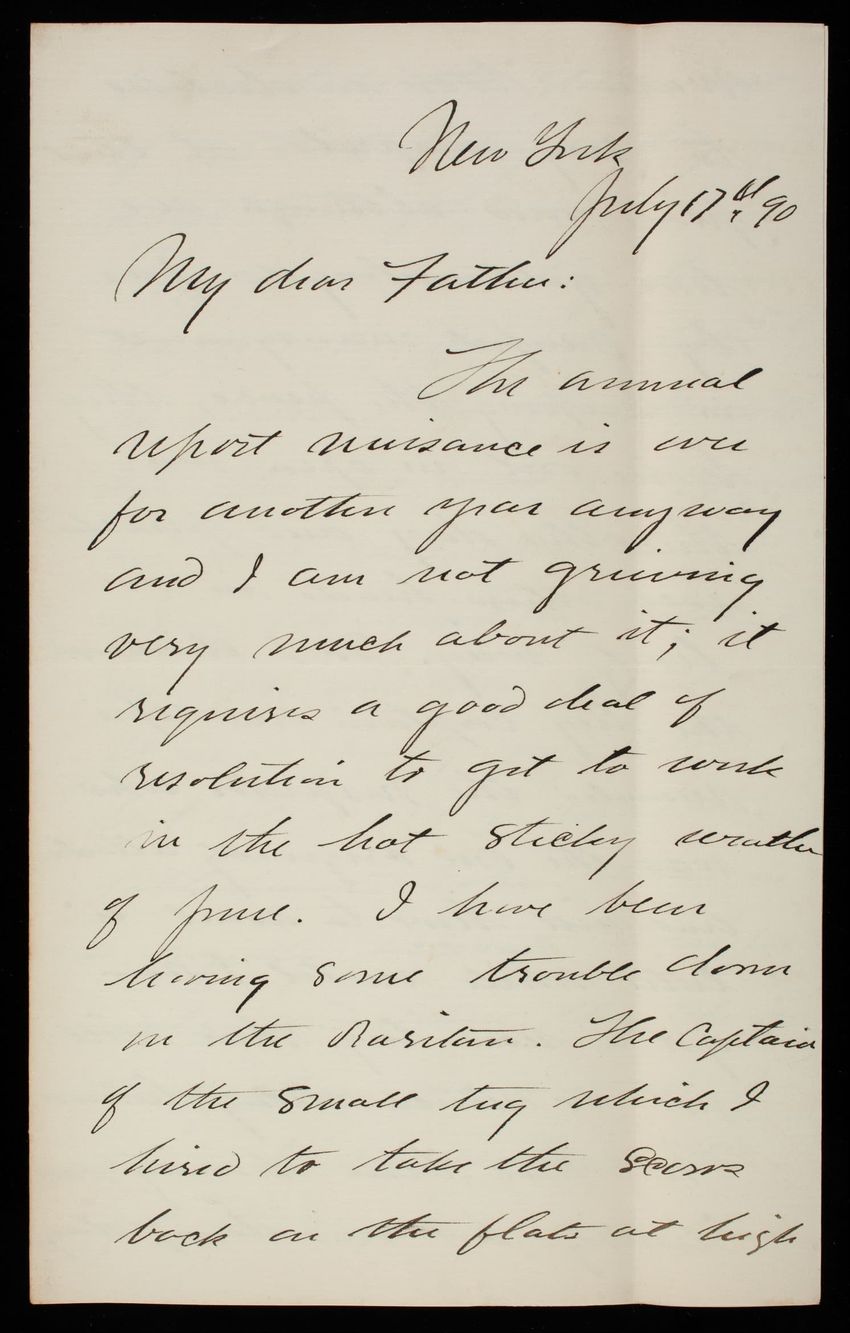 New York
July 17th 90
My dear Father:
The annual
report nuisance is over
for another year anyway
and I am not grieving
very much about it; it
requires a good deal of
resolution to get to work
in the hot sticky weather
of June. I have been
having some trouble down
on the Raritan. The Captain
of the small tug which I
hired to take the scows
back on the flats at high